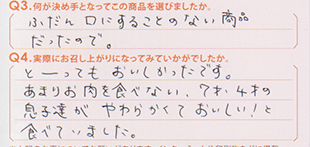 Q3.何が決め手となってこの商品を選びましたか。
ふだん口にすることのない商品
だったので。
Q4.実際にお召し上がりになってみていかがでしたか。
とーってもおいしかったです。
あまりお肉を食べない、7才、4才の
息子達が やわらかくておいしい!と
食べていました。